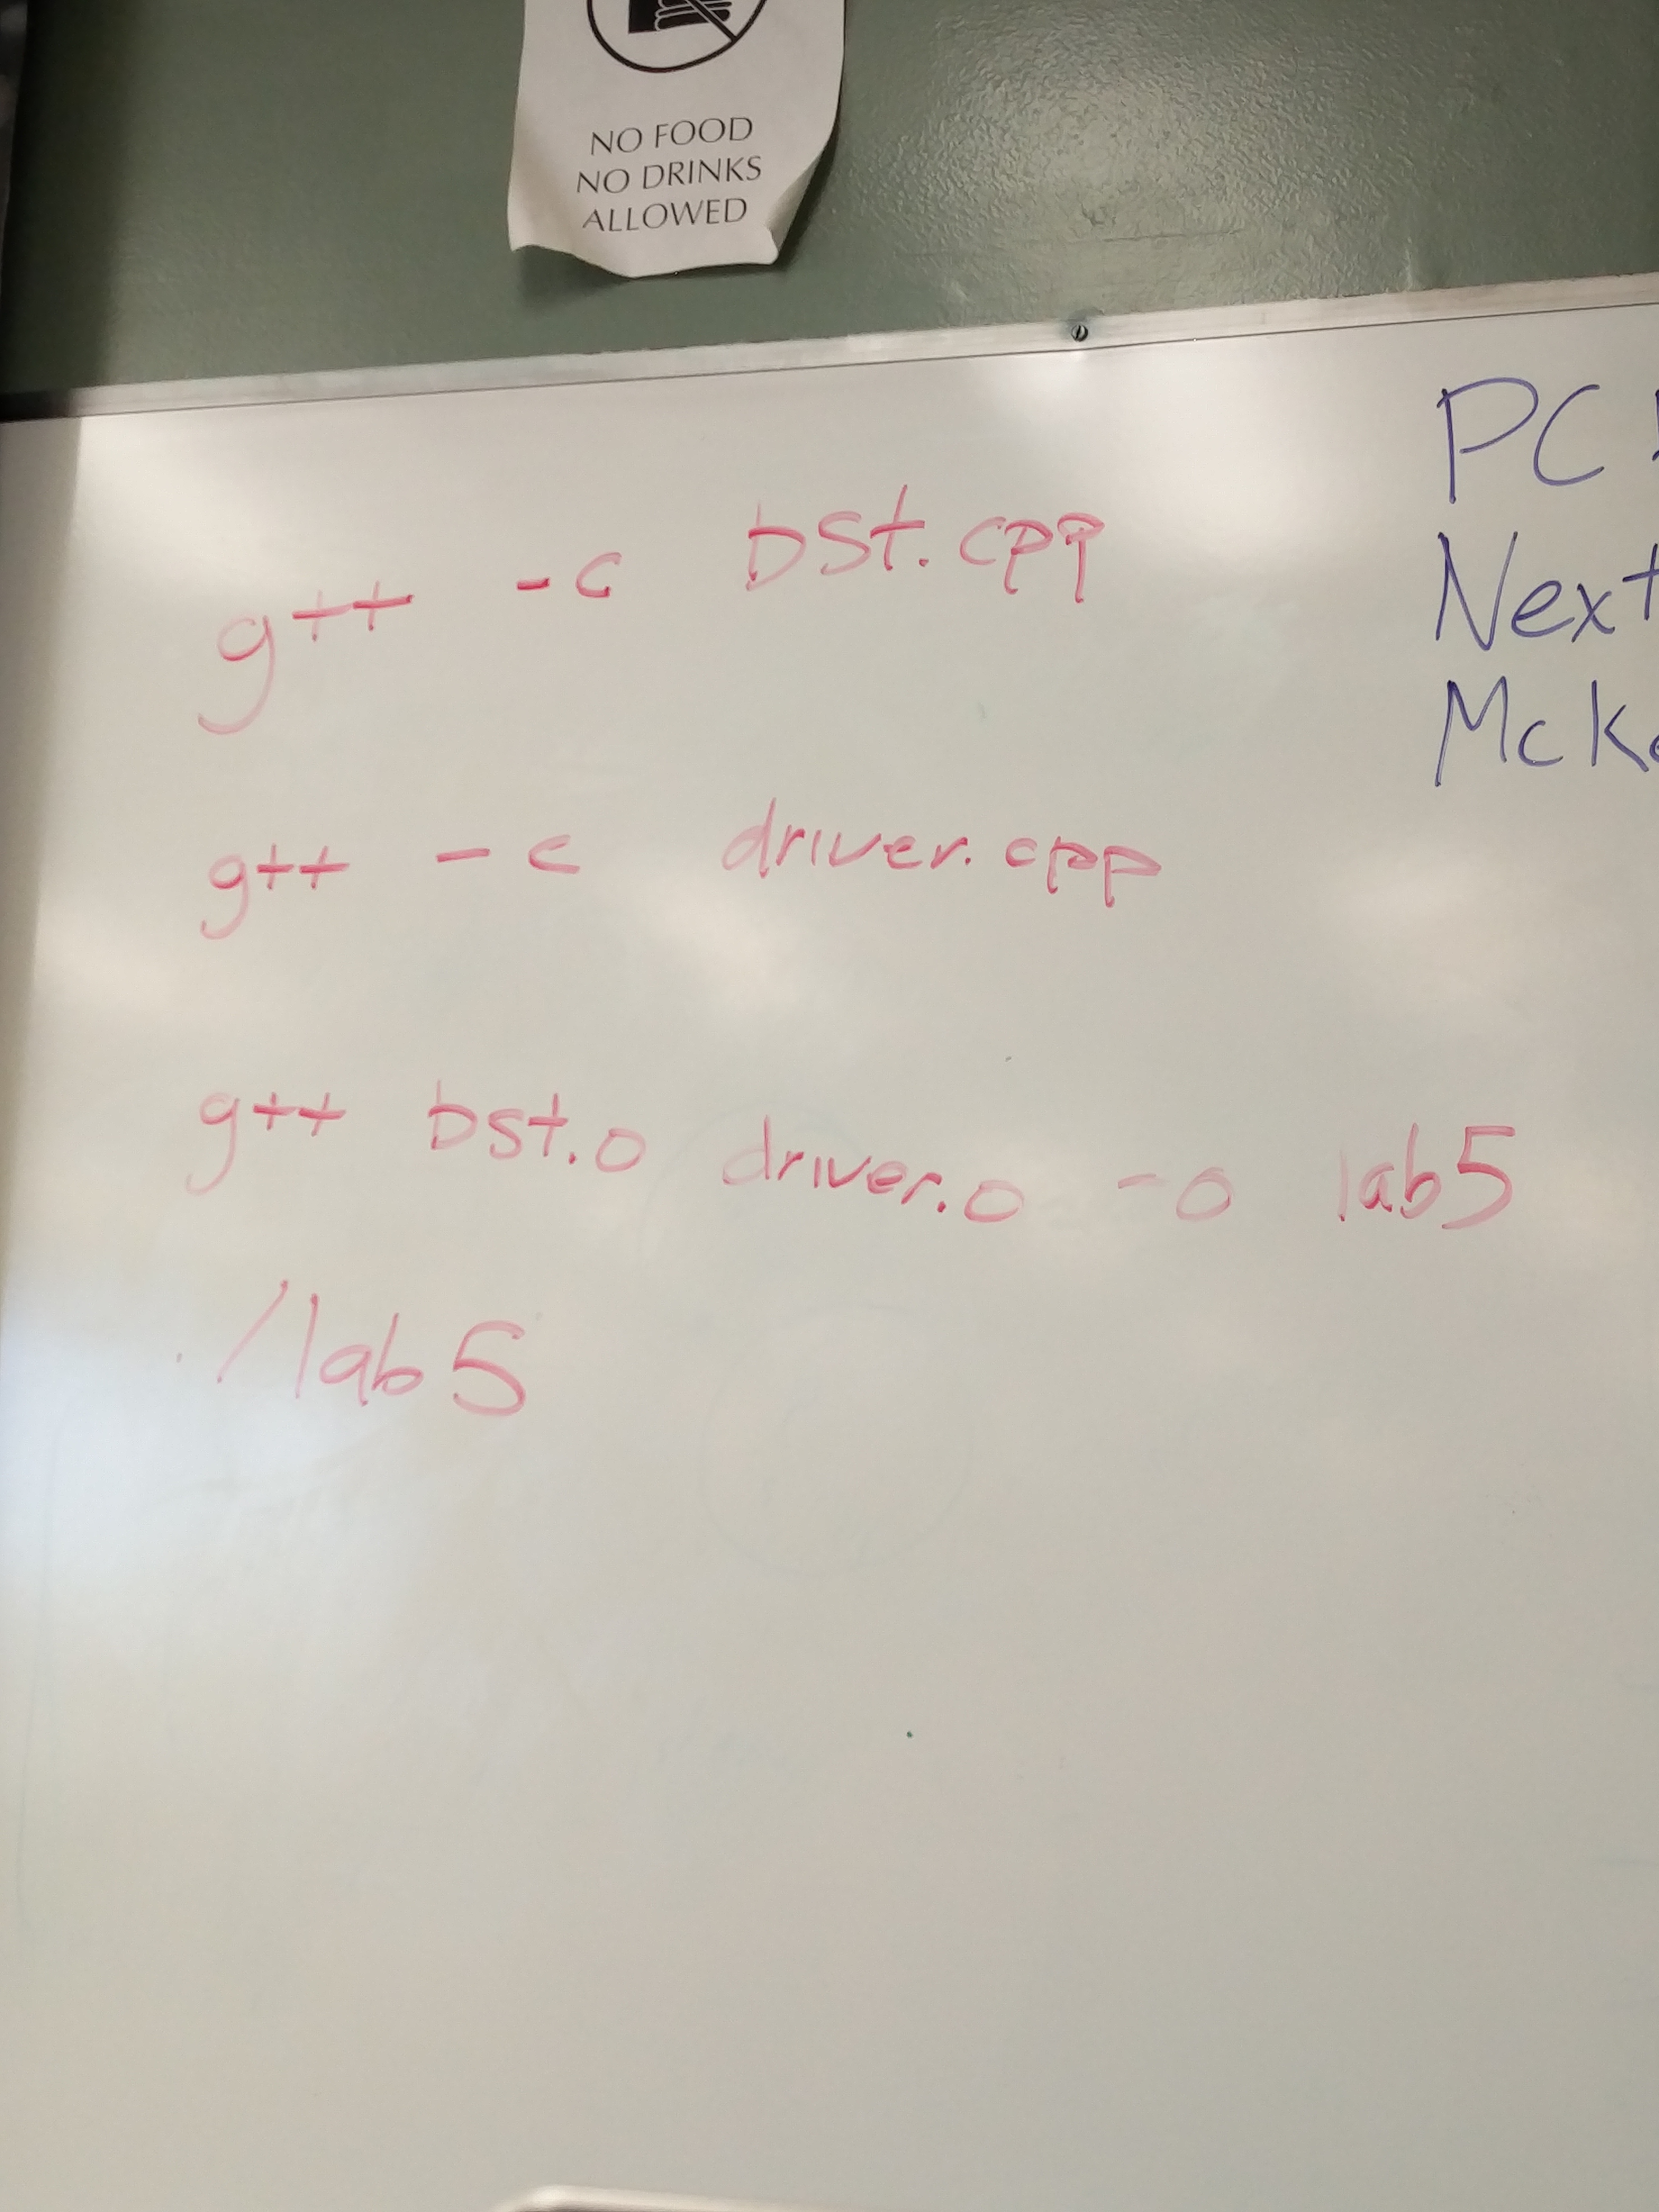 NO FOOD
NO DRINKS
ALLOWED
g++ -c bst.cpp
g++ -c driver.cpp
g++ bst.o driver.o -o lab5
./lab5
PC
Next